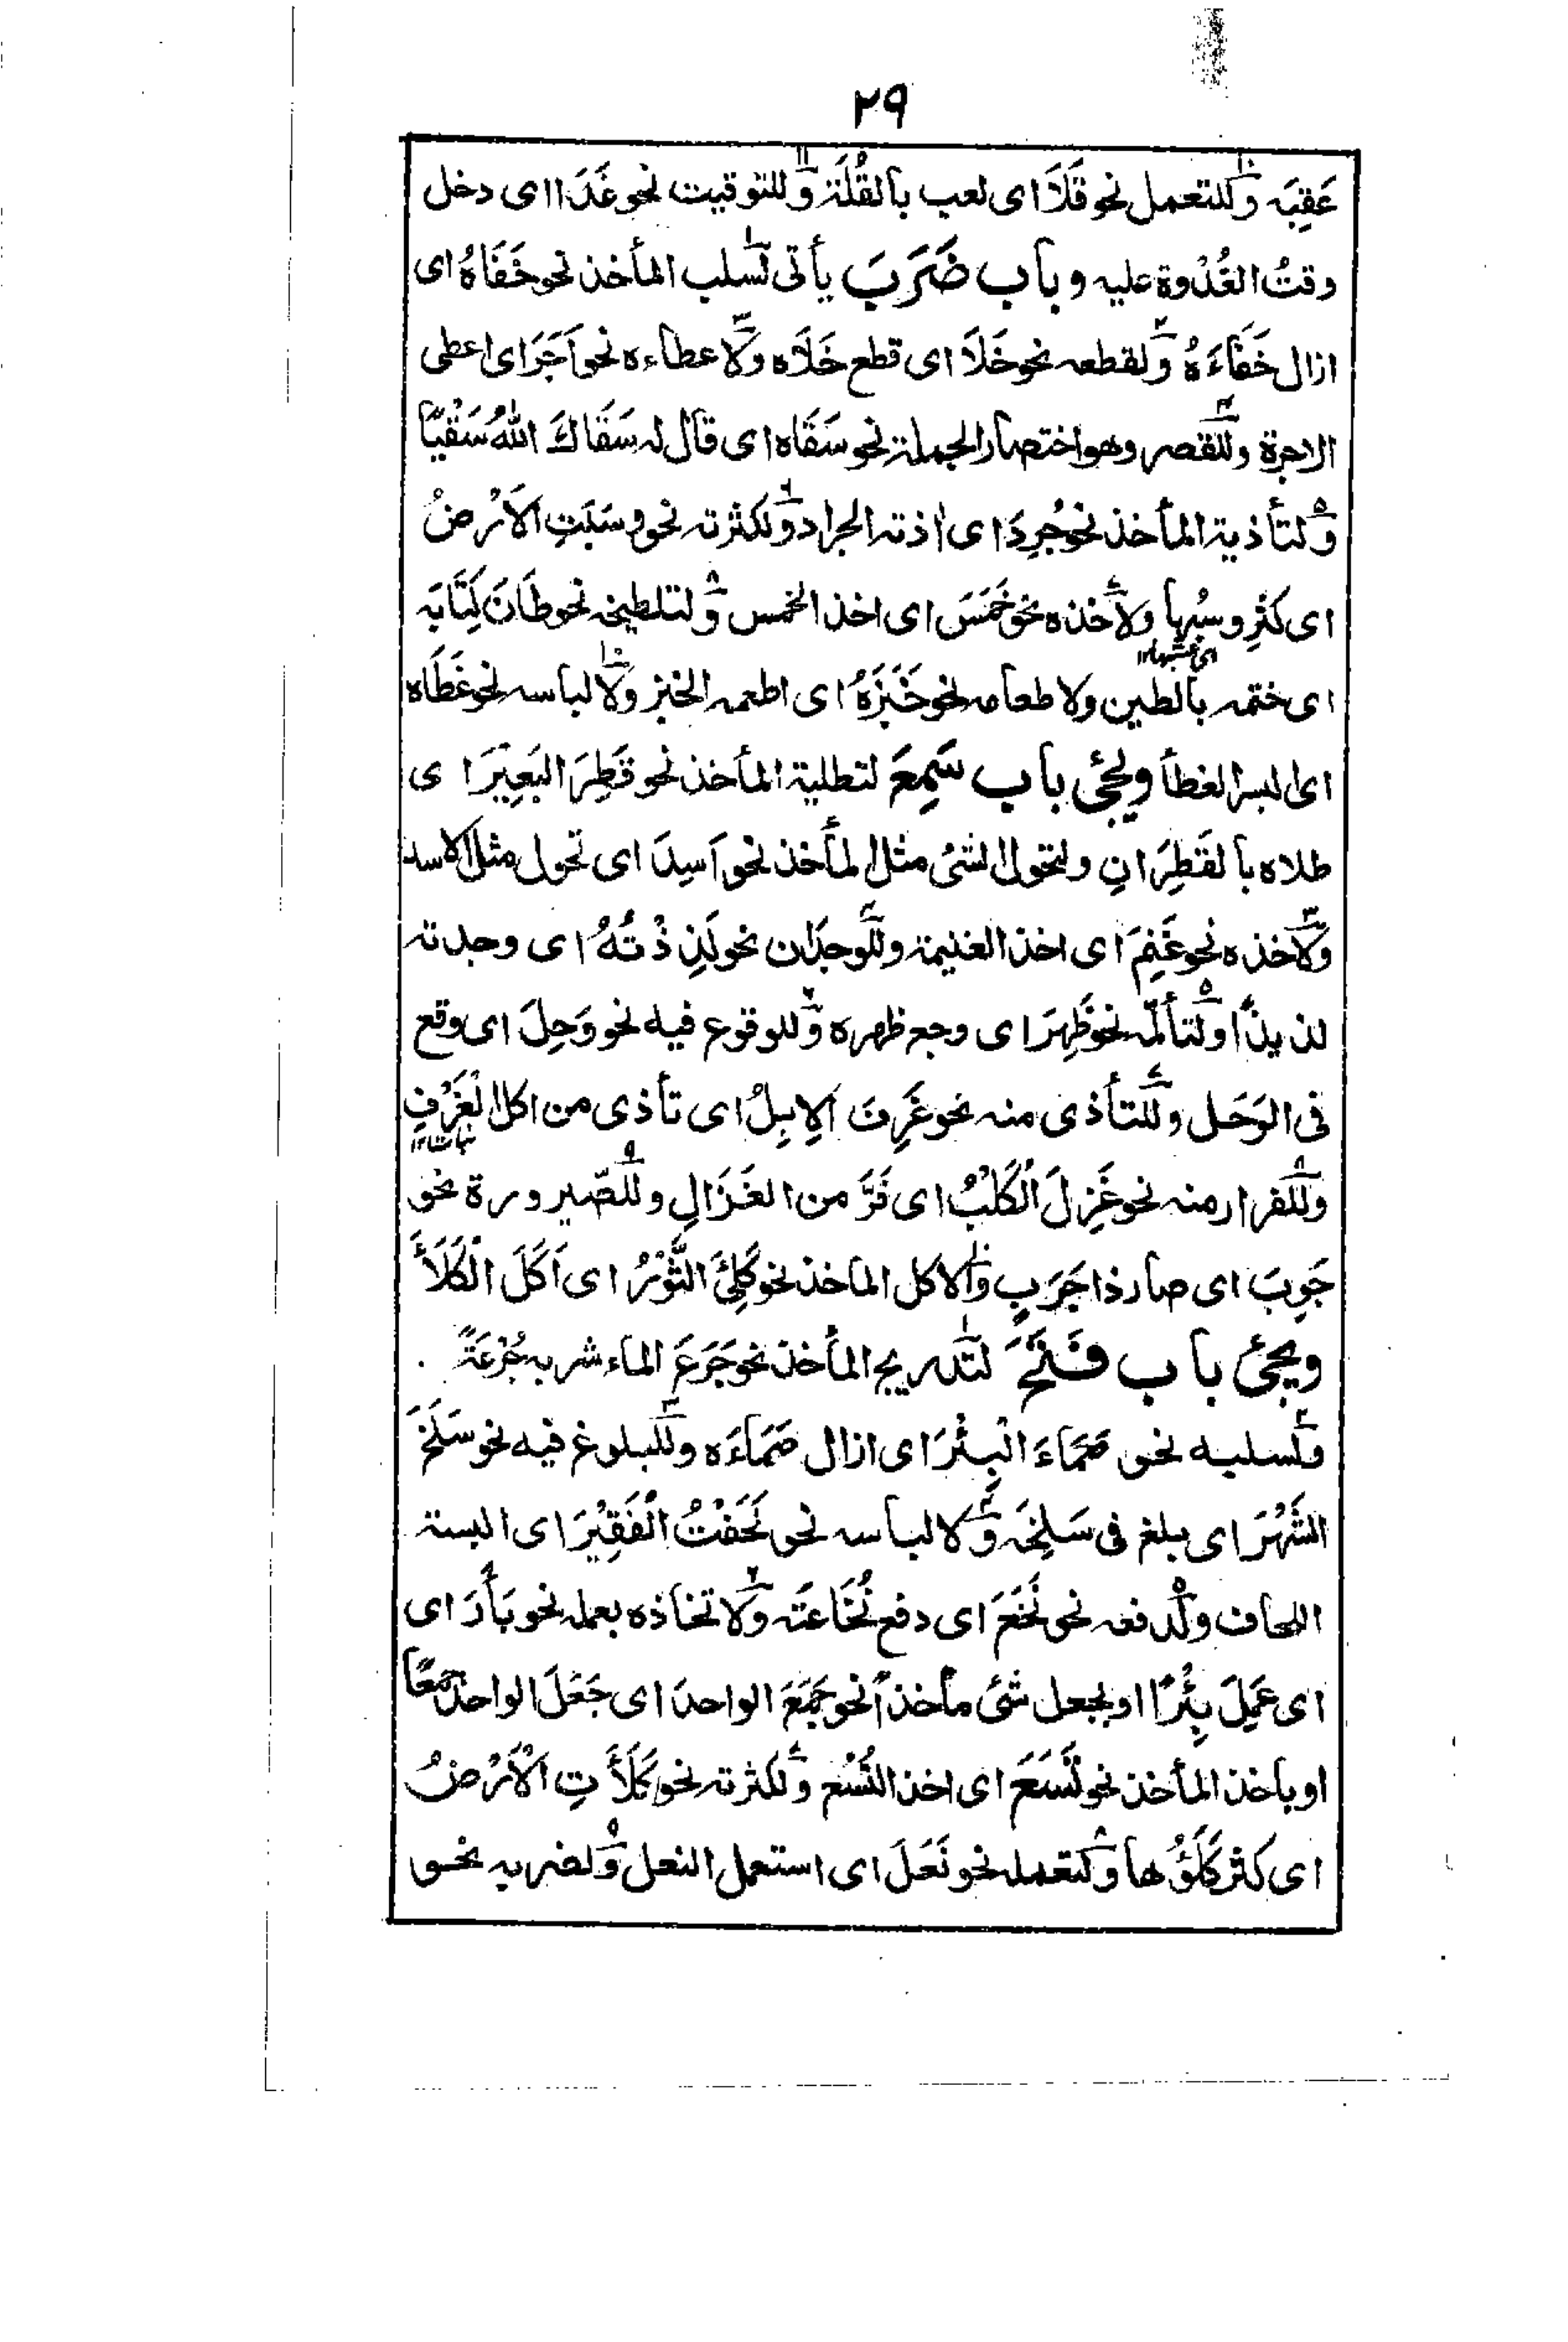 ٢٩
عَقِبَہ وللتعمل نحو قَلَا ای لعب بالقُلَۃِ وللتوقیت نحو غَدَا ای دخل
وقتُ الغُدْوۃ علیہ وباب ضَرَبَ یأتی لسلب المأخذ نحو خَفَاہُ ای
ازال خَفَاءَہُ ولقطعہ نحو خَلَا ای قطع خَلَاہ ولاعطاءہ نحو اَجَرَ ای اعطی
الاجرۃ وللقصر وهو اختصار الجملۃ نحو سَقَاہ ای قال لہ سَقَاكَ اللّٰہُ سَقْیًا
ولتأذیۃ المأخذ نحو جُرِدَ ای اٰذتہ الجراد ولکثرتہ نحو وسَبَتِ الاَرْضُ
ای کَثِرَ وسْبُہا ولأخذہ نحو خَمَسَ ای اخذ الخمس ولتلطیخہ نحو طَانَ کِتَابَہ
ای عشبہا ١٢
ای ختمہ بالطین ولاطعامہ نحو خَبَزَہُ ای اطعمہ الخبز ولالباسہ نحو غَطَاہ
ای البسہ الغطأ ویجئ باب سَمِعَ لتطلیۃ المأخذ نحو قَطِرَ البَعِیْرَ ای
طلاہ بالقَطِرَانِ ولتحول الشئ مثل المأخذ نحو اَسِدَ ای تحول مثل الاسد
ولأخذہ نحو غَنِمَ ای اخذ الغنیمۃ وللوجدان نحو لَذِذْتُہُ ای وجدتہ
لذیذًا ولتألمہ نحو ظَهِرَ ای وجع ظهرہ وللوقوع فیہ نحو وَحِلَ ای وقع
فی الوَحَل وللتأذی منہ نحو غَرِفَ الاِبِلُ ای تأذی من اکل الغَرْفِ
نبات ١٢
وللفرار منہ نحو غَزِلَ الْکَلْبُ ای فَرَّ من الغَزَالِ وللصّیرورۃ نحو
جَرِبَ ای صار ذا جَرَبٍ ولاکل المأخذ نحو کَلِئَ الثَّوْرُ ای اَکَلَ الْکَلَأَ
ویجئ باب فَتَحَ لتدریج المأخذ نحو جَرَعَ الماء شربہ جُرْعَۃً
ولسلبہ نحو حَمَاءَ الْبِئْرَ ای ازال حَمَاءَہ وللبلوغ فیہ نحو سَلَخَ
الشَّهْرَ ای بلغ فی سَلِخَہ ولالباسہ نحو لَحَفْتُ الْفَقِیْرَ ای البستہ
اللحاف ولدفعہ نحو نَخَعَ ای دفع نُخَاعَتَہ ولاتخاذہ بعملہ نحو بَأَرَ ای
ای عَمِلَ بِئْرًا او بجعل شئ مأخذًا نحو جَمَعَ الواحدَ ای جَعَلَ الواحدَ جَمْعًا
او باخذ المأخذ نحو تَسَعَ ای اخذ التُسْعَ ولکثرتہ نحو کَلَأَتِ الْاَرْضُ
ای کثر کَلَؤُها ولتعملہ نحو نَعَلَ ای استعمل النعل ولضربہ نحو